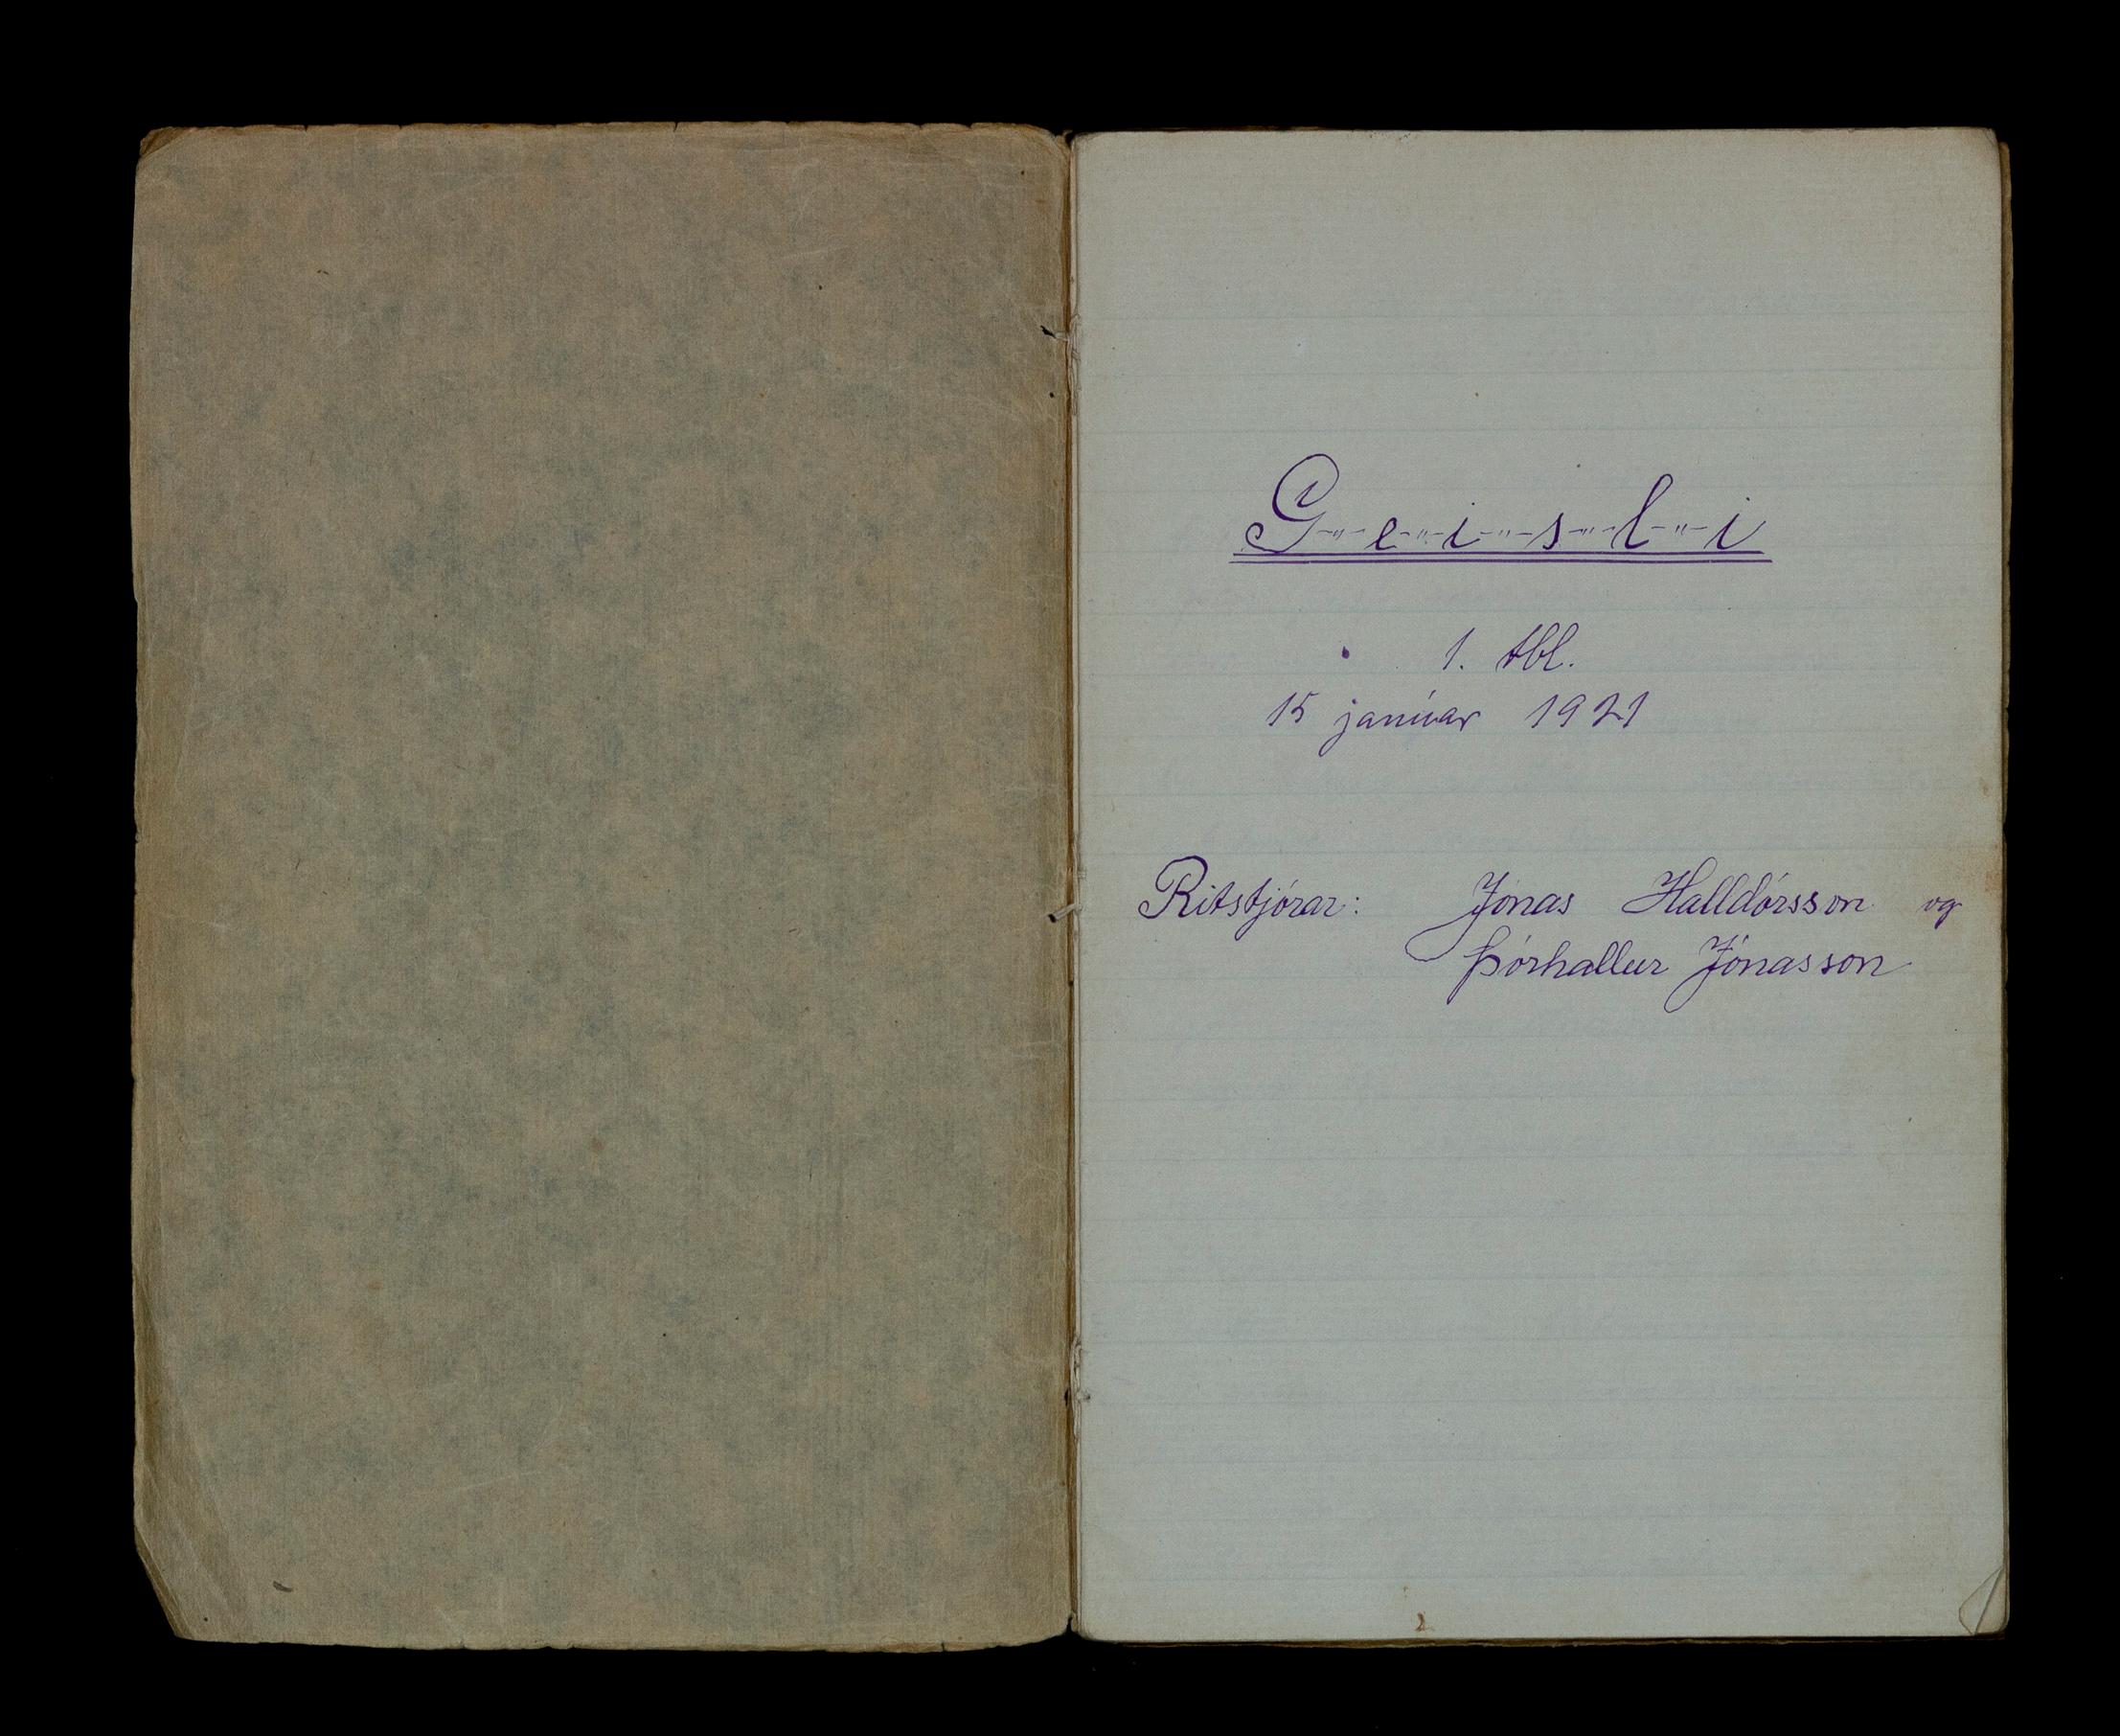 G-"-e-"-i-"-s-"-l-"-i
1. tbl.
15 janúar 1921
Ritstjórar: Jónas Halldórsson og
Þórhallur Jónasson